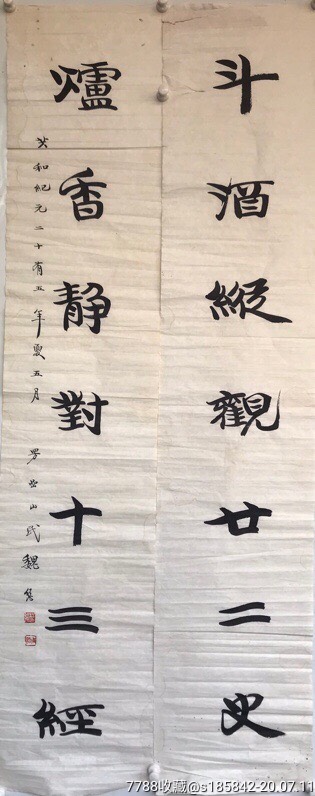 斗酒縱觀廿二史
爐香静對十三經
共和紀元二十有五年夏五月
山民魏
7788收藏@s185842-20.07.11